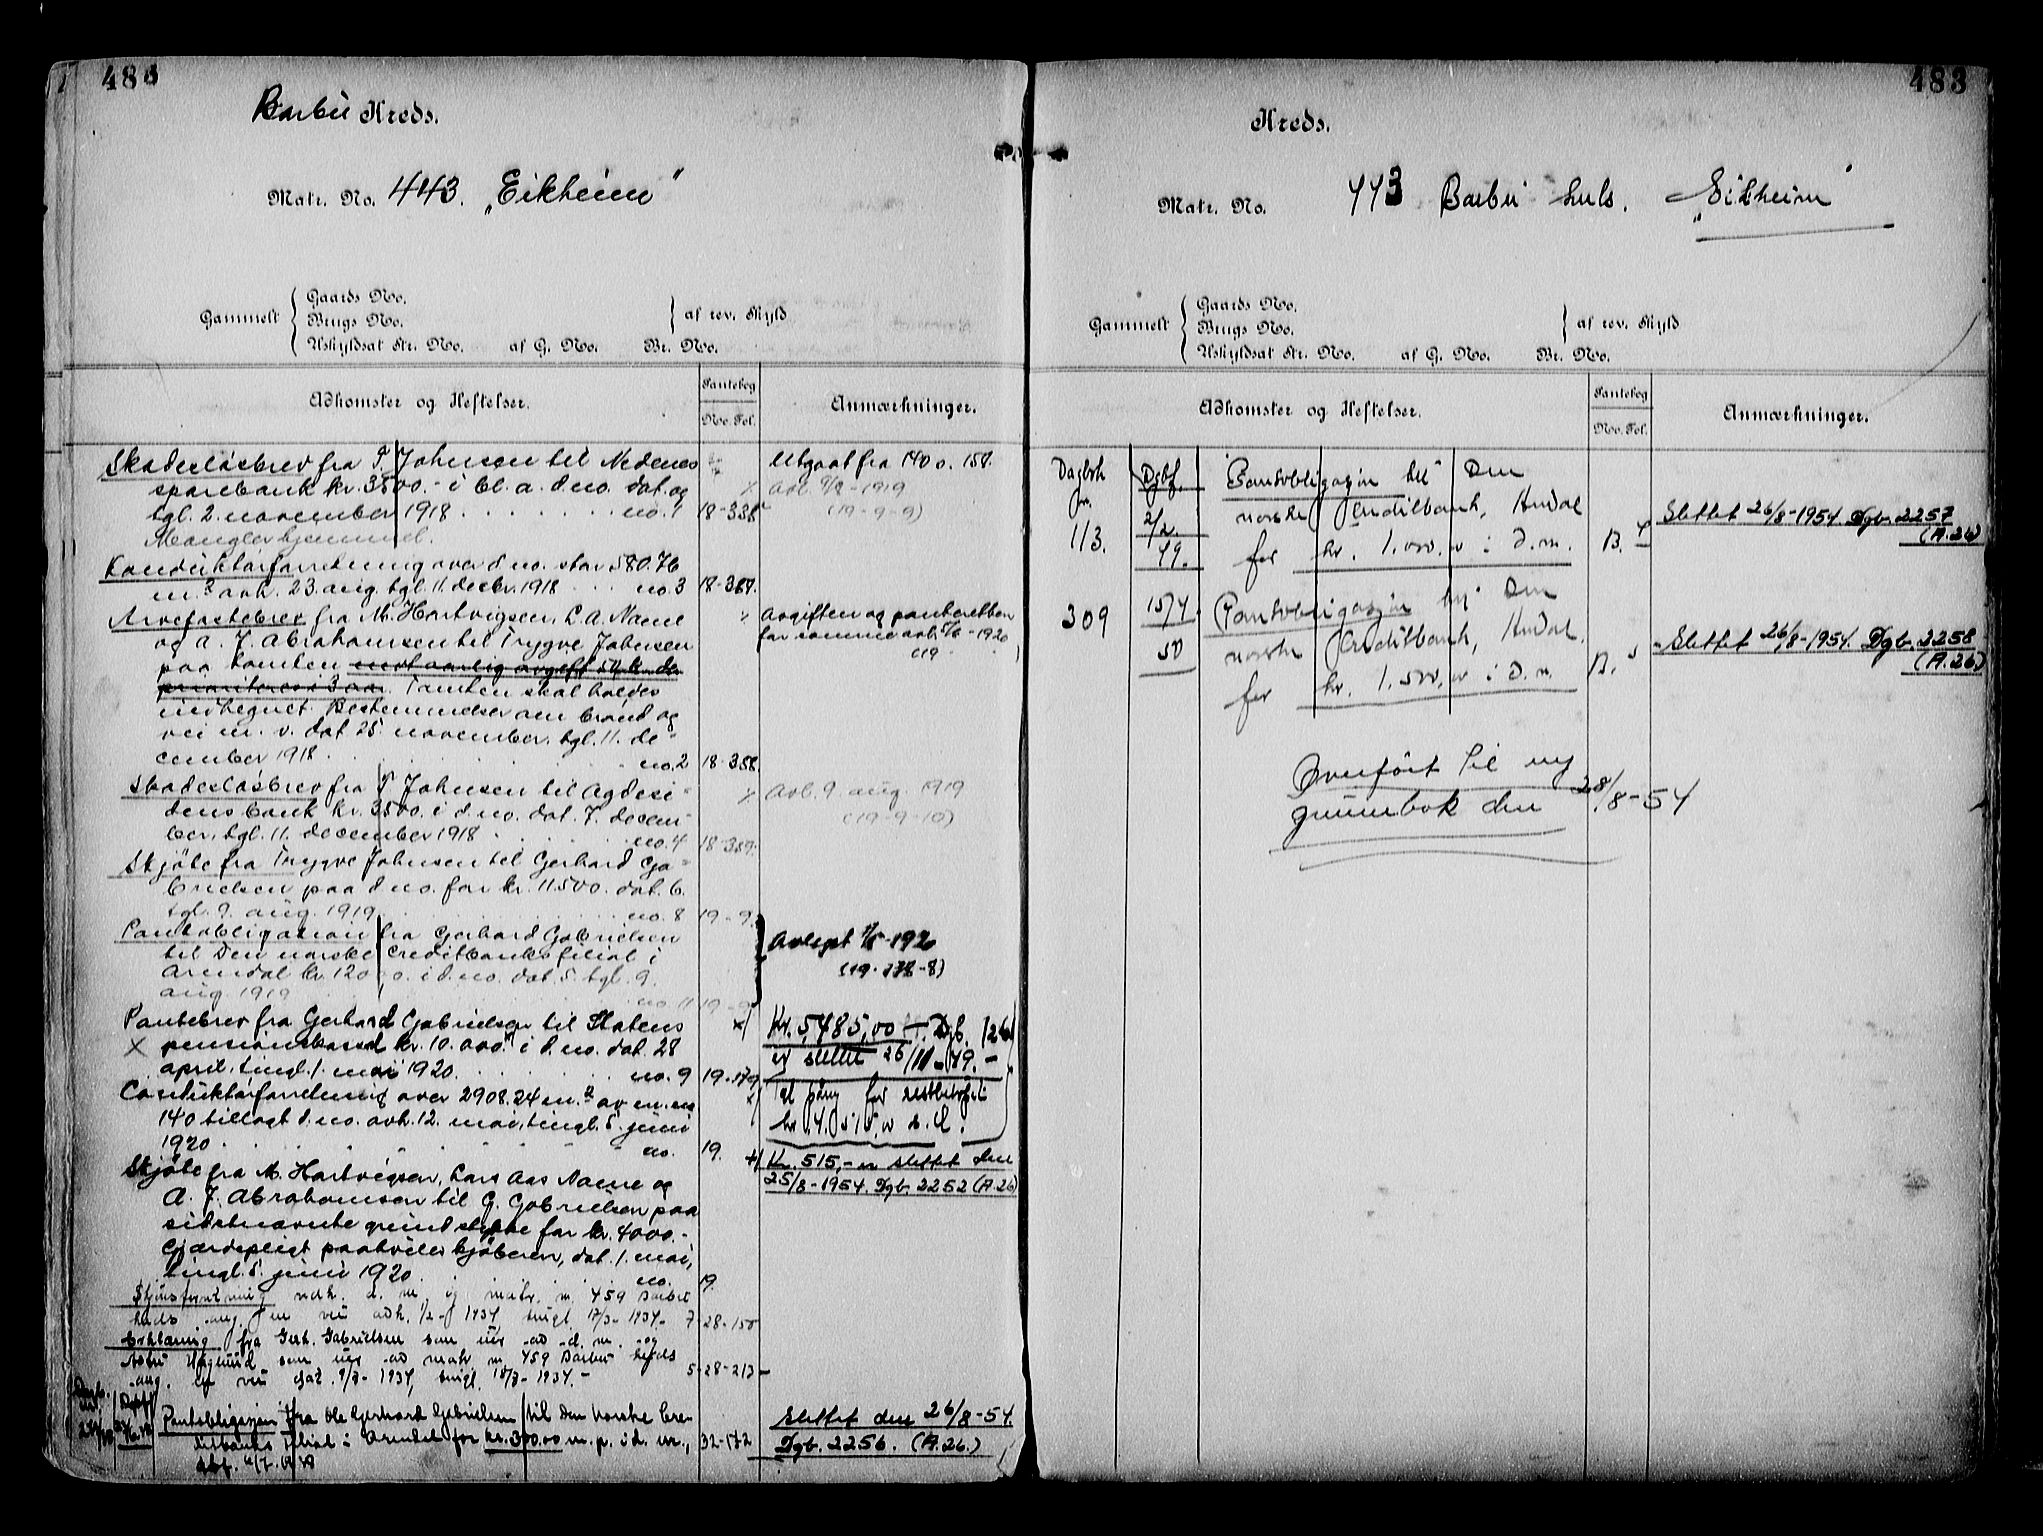 Barbu Kreds.
Matr. No. 443. „Eikheim"
Gammelt
Gaards No.
Brugs No.
Uskyldsat Str. No. af G. No. Br. No.
af rev. Skyld
Adkomster og Heftelser.
Pantebog
No. Fol.
Anmærkninger.
Skadesløsbrev fra T. Johnsen til Nedenes
sparebank kr. 3500.- i bl. a. d. no. dat. og
tgl. 2. november 1918 no. 1 18-338
Utgaat fra 140 o. 158.
avl. 9/8-1919
(19-9-9)
Mangler hjemmel.
Konduktørforretning over d no. stor 580.76
m.² avh. 23. aug. tgl. 11. decbr. 1918 no. 3 18-387.
Arvefæstebrev fra M. Hartvigsen, L. A. Næme
og A. J. Abrahamsen til Trygve Johnsen
paa tomten mot aarlig avgift 50 kr. der
prioriteres i 3 aar. Tomten skal holdes
indhegnet. Bestemmelser om brønd og
vei m. v. dat 25 november, tgl. 11. de-
cember 1918 no. 2 18-388.
Avgiften og panteretten
for samme avl. 5/6-1920
(19
Skadesløsbrev fra T Johnsen til Agdesi-
dens bank kr. 3500. i d. no. dat. 7. decem-
ber, tgl. 11. december 1918 no. 4 18-389.
Avl. 9. aug. 1919
(19-9-10)
Skjøte fra Trygve Johnsen til Gerhard Ga-
brielsen paa d no. for kr. 11.500. dat. 6.
tgl. 9. aug. 1919 no. 8 19-9.
Pantobligasion fra Gerhard Gabrielsen
til Den norske Creditbanks filial i
Arendal kr. 12000. i d. no. dat. 5. tgl. 9.
aug. 1919 no. 11 19-9
Avlyst 1/5-1920
(19-178-8)
Pantebrev fra Gerhard Gabrielsen til Statens
× pensionskasse kr. 10.000 i d. no. dat. 28
april, tingl. 1. mai 1920. no. 9 19-179
Kr. 5,485,00 Dgb. 1261
er slettet 26/11-49.-
kr. 4.515,00
Conduktørforretning over 2908.24 m.² av m. no
140 tillagt d. no. avh. 12. mai, tingl. 5. juni
1920 no. 19.
Skjøte fra M. Hartvigsen, Lars Aas Næme og
A. J. Abrahamsen til G. Gabrielsen paa
sidstnævnte grundstykke for kr. 4000.-
Gjærdepligt paahviler kjøberen, dat. 1. mai,
tingl. 5. juni 1920 no. 19.
Kr. 515,- er slettet den
25/8-1954. Dgb. 2252 (A.26)
Skjønsforretning vedk. d. m. og matr. nr. 459 Barbu
huds ang. en vei avh. 1/2-1934 tingl. 17/3-1934. 7-28-150
Erklæring fra Gerh. Gabrielsen som eier av d. m. og
som eier av matr. nr. 459 Barbu
ang. en vei dat. 9/3-1934, tingl. 18/3-1934.- 5-28-213-
Pantobligasjon fra Ole Gerhard Gabrielsen til Den Norske Cre-
ditbanks filial i Arendal for kr. 3000.00 m. p. i d. nr., 32-172
Slettet den 26/8-54.
Dgb. 2256. (A.26.)
483
Kreds.
Matr. No. 443 Barbu huds. „Eikheim"
Gammelt
Gaards No.
Brugs No.
Uskyldsat Str. No. af G. No. Br. No.
af rev. Skyld
Adkomster og Heftelser.
Pantebog
No. Fol.
Anmærkninger.
Dagbok
nr.
Dgbf.
113.
2/2
49.
Pantobligasjon til Den
norske Creditbank, Arendal
for kr. 1.000,00 i d. nr. B. 4
Slettet 26/8-1954 Dgb. 2257
(A.26)
309
15/4.
50
Pantobligasjon til Den
norske Creditbank, Arendal.
for kr. 1.500,00 i d. nr. B. 5
Slettet 26/8-1954. Dgb. 2258
(A.26.)
Overført til ny
grunnbok den 28/8-54